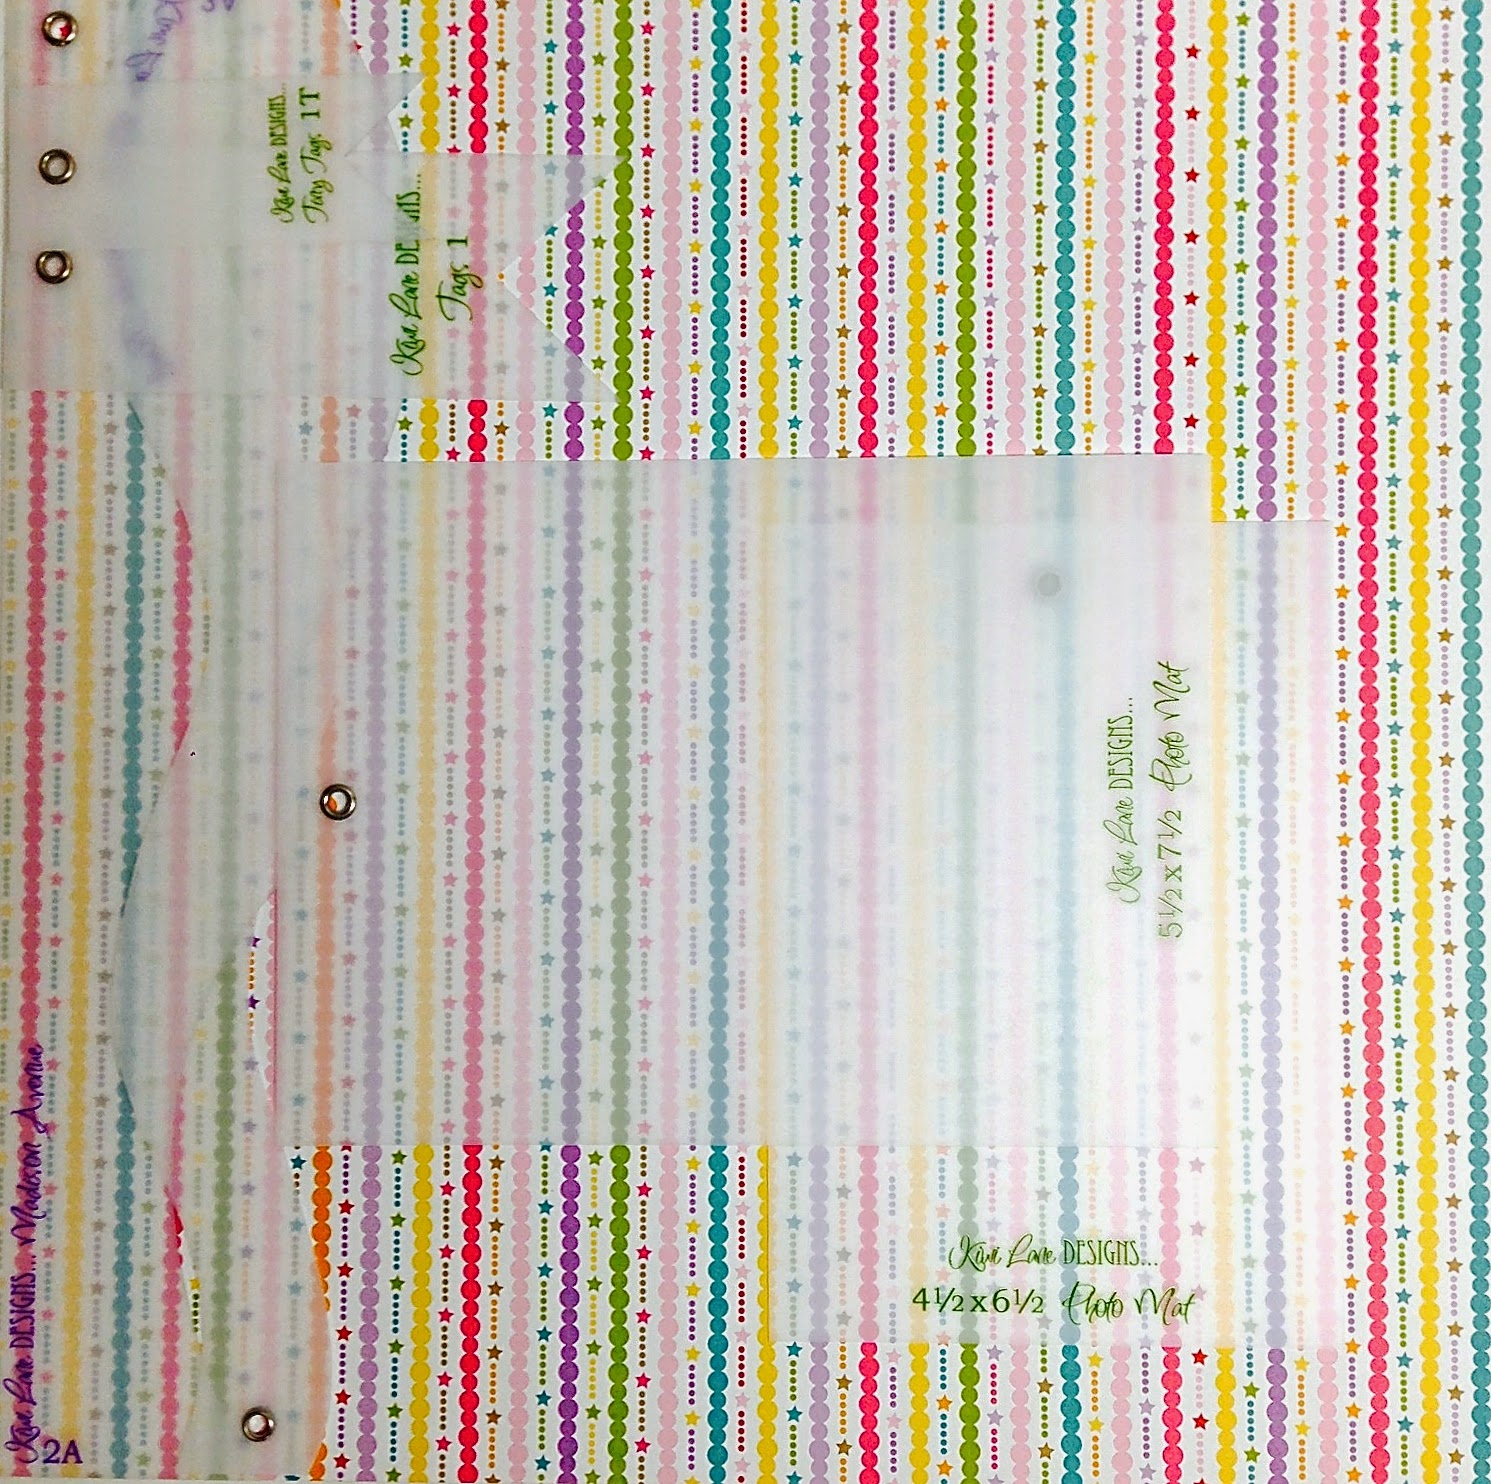 Kiwi Lane DESIGNS...
Tiny Tags 1T
Kiwi Lane DESIGNS...
Tags 1
Kiwi Lane DESIGNS...
5½ x 7½ Photo Mat
Kiwi Lane DESIGNS...
4½ x 6½ Photo Mat
Kiwi Lane DESIGNS... Madison Avenue
2A